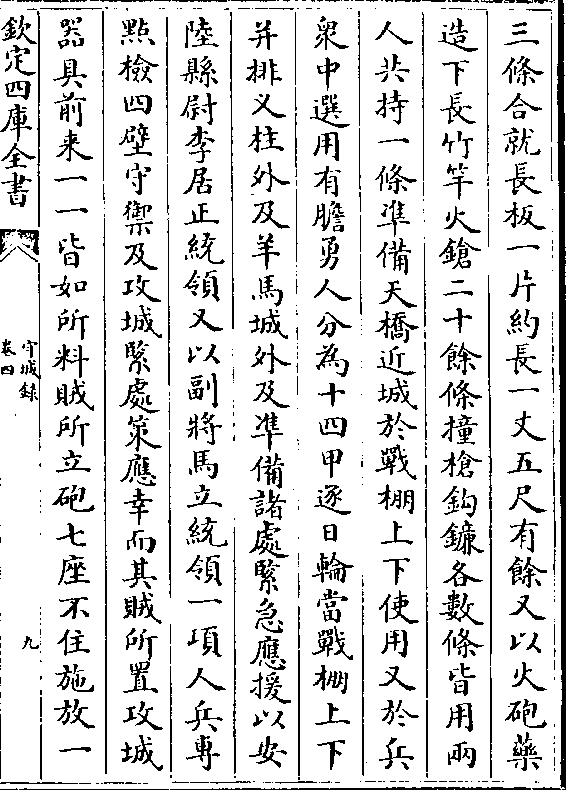 三條合就長板一片約長一丈五尺有餘又以火砲藥
造下長竹竿火鎗二十餘條撞槍鈎鐮各數條皆用兩
人共持一條凖備天橋近城於戰棚上下使用又於兵
衆中選用有膽勇人分為十四甲逐日輪當戰棚上下
并排义柱外及羊馬城外及凖備諸處緊急應援以安
陸縣尉李居正統領又以副將馬立統領一項人兵專
點檢四壁守禦及攻城緊處策應幸而其賊所置攻城
器具前来一一皆如所料賊所立砲七座不住施放一
欽定四庫全書
守城錄
卷四
九